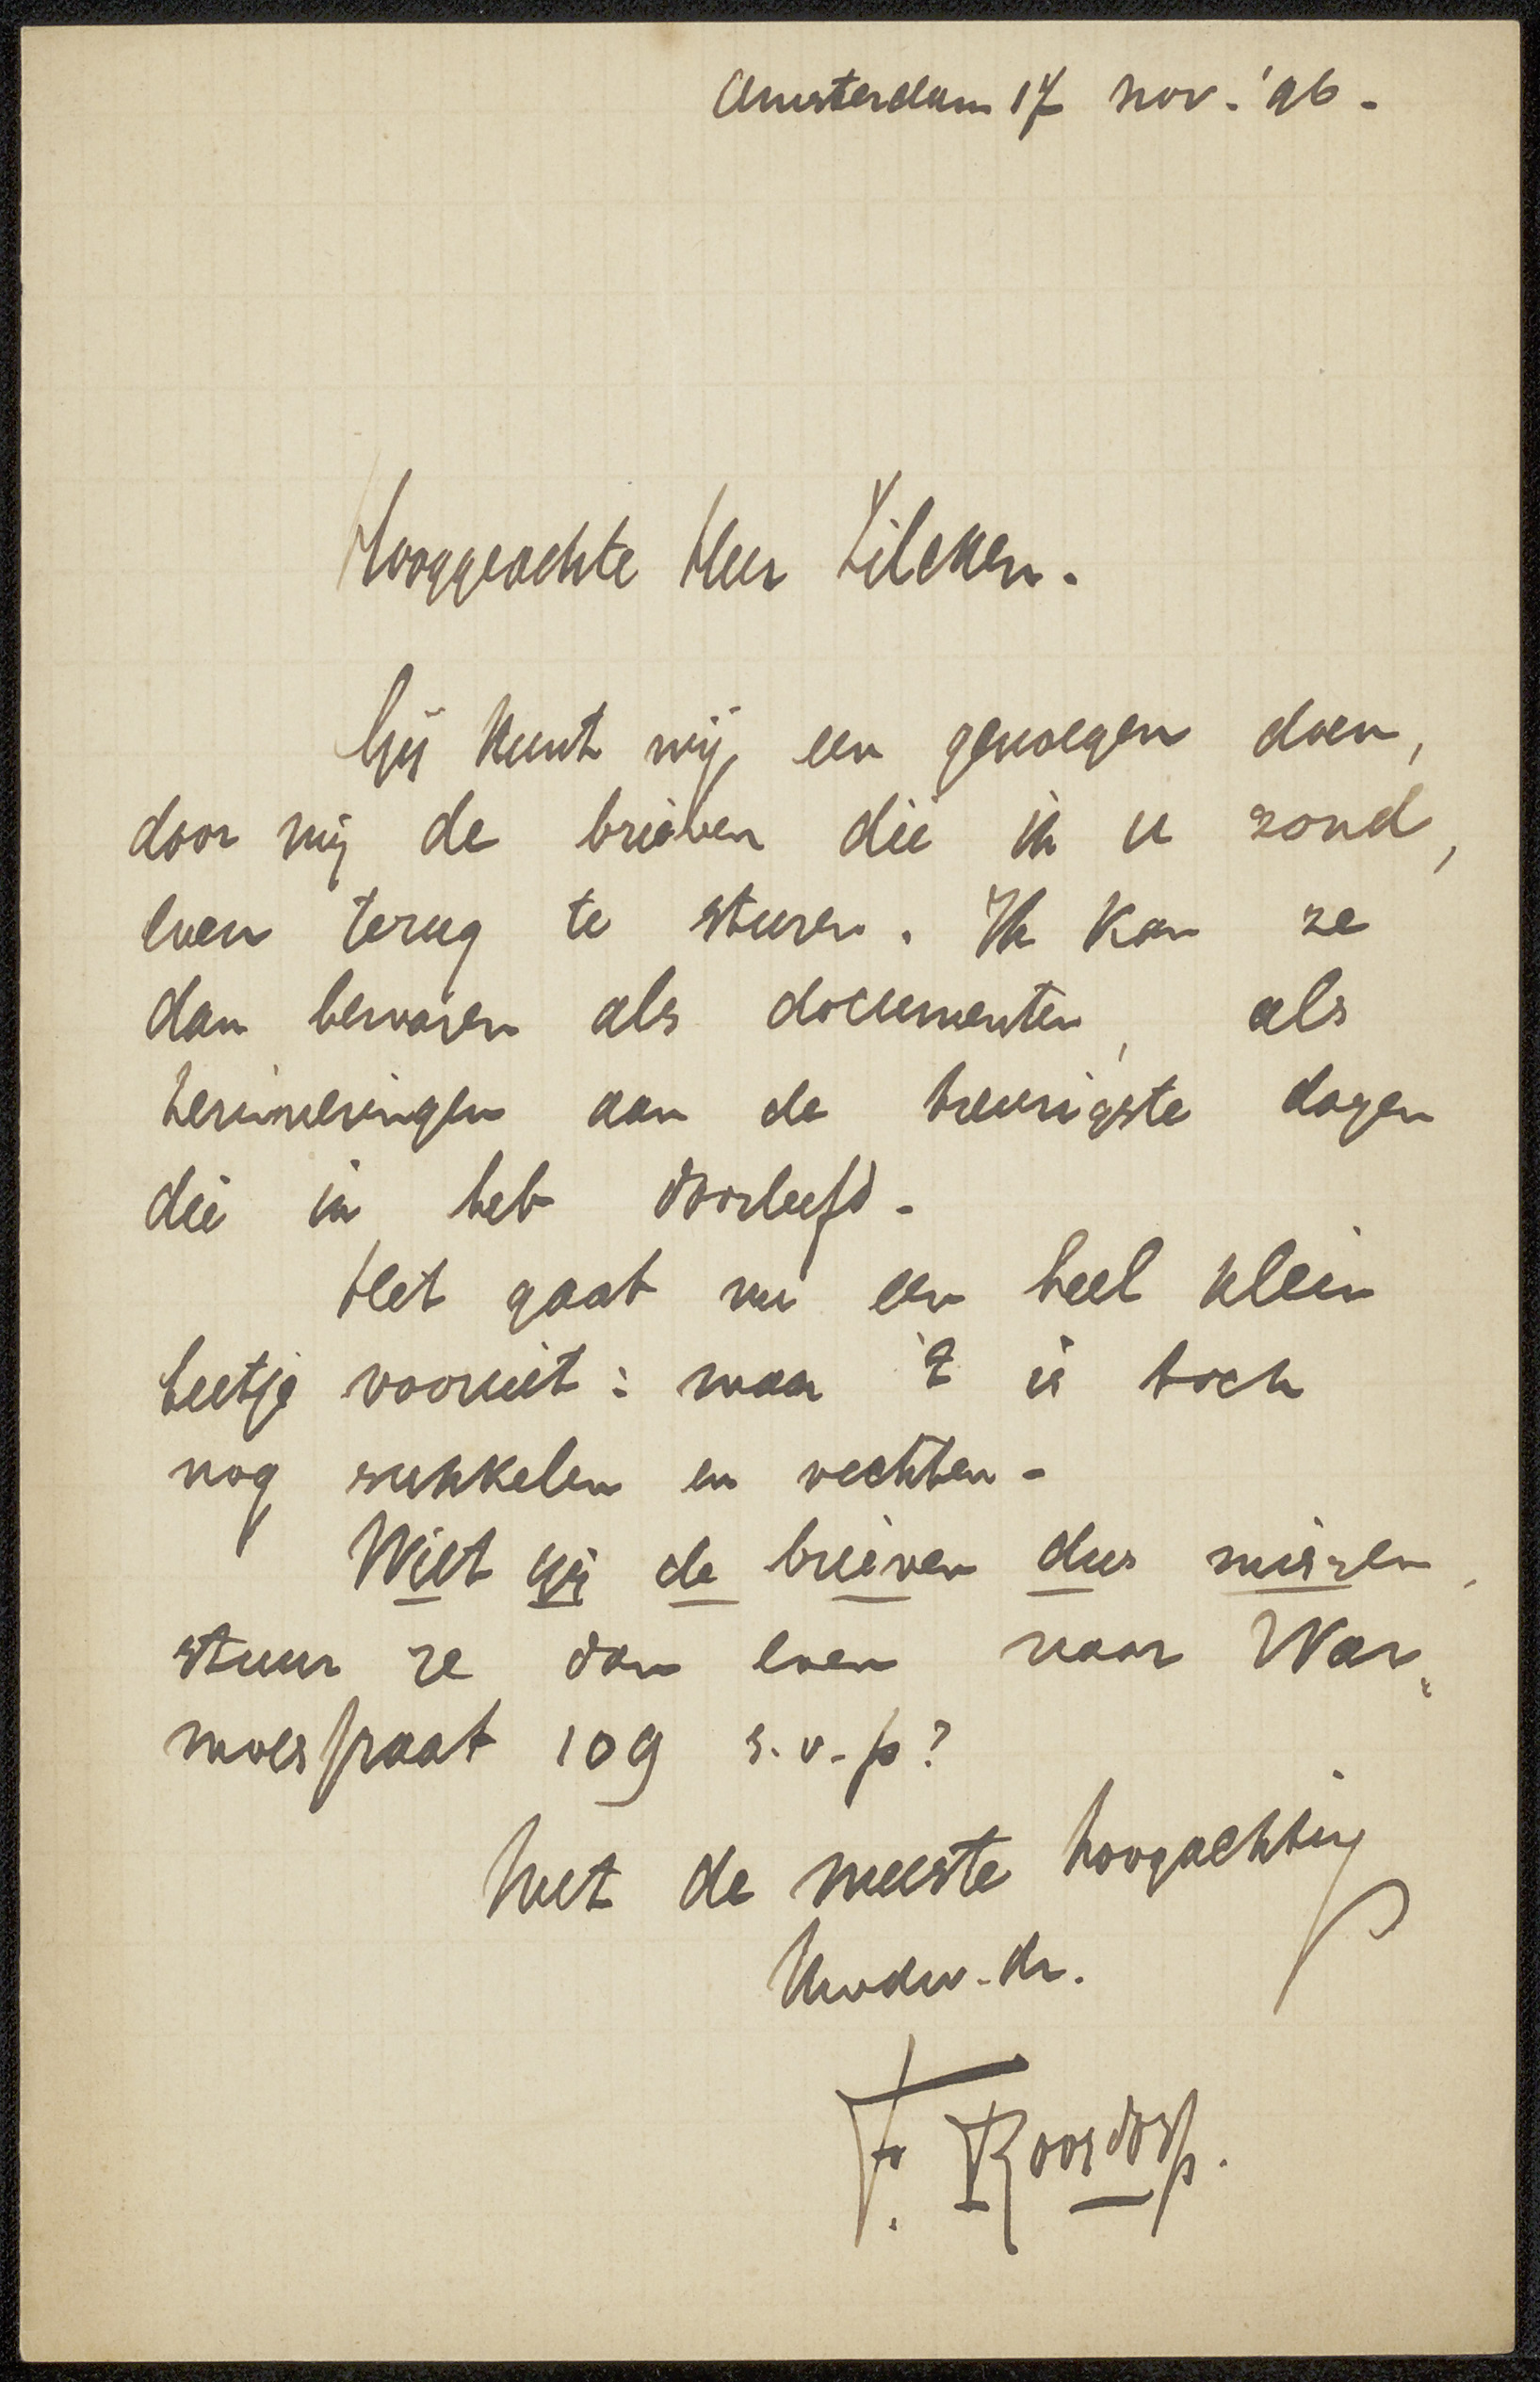 Amsterdam 17 nov. '96.
Hooggeachte Heer Zilcken.
Gij kunt mij een genoegen doen,
door mij de brieven die ik u zond,
even terug te sturen. Ik kan ze
dan bewaren als documenten, als
herinneringen aan de treurigste dagen
die ik heb doorleefd.
Het gaat nu een heel klein
beetje vooruit: maar 't is toch
nog sukkelen en vechten.
Wilt gij de brieven dus missen,
stuur ze dan even naar War„
moesstraat 109 s.v.p?
Met de meeste hoogachting
Uwdw. dr.
F. Roosdorp.